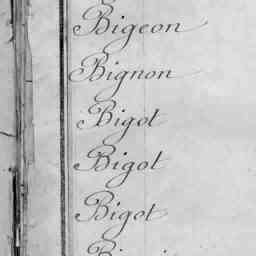 Bigeon
Bignon
Bigot
Bigot
Bigot